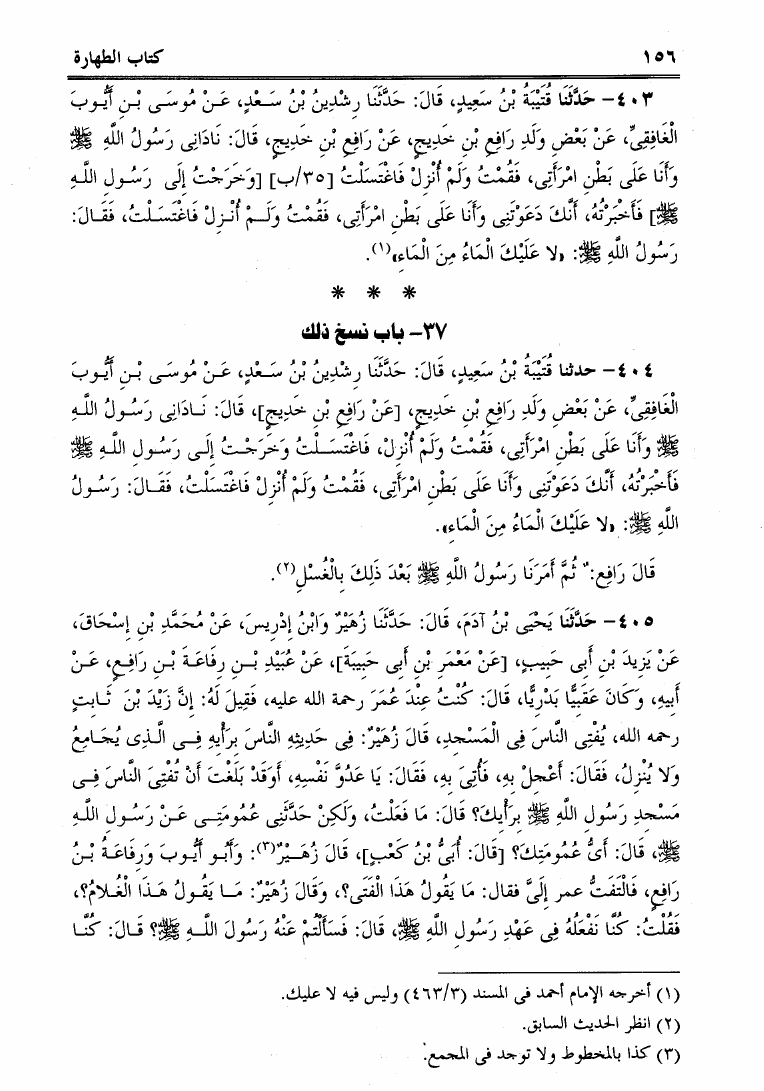 ١٥٦ كتاب الطهارة
٤٠٣- حَدَّثَنَا قُتَيْبَةُ بْنُ سَعِيدٍ، قَالَ: حَدَّثَنَا رِشْدِينُ بْنُ سَعْدٍ، عَنْ مُوسَى بْنِ أَيُّوبَ
الْغَافِقِيِّ، عَنْ بَعْضِ وَلَدِ رَافِعِ بْنِ خَدِيجٍ، عَنْ رَافِعِ بْنِ خَدِيجٍ، قَالَ: نَادَانِى رَسُولُ اللَّهِ ﷺ
وَأَنَا عَلَى بَطْنِ امْرَأَتِى، فَقُمْتُ وَلَمْ أُنْزِلْ فَاغْتَسَلْتُ [٣٥/ب] [وَخَرَجْتُ إِلَى رَسُولِ اللَّهِ
ﷺ] فَأَخْبَرْتُهُ، أَنَّكَ دَعَوْتَنِى وَأَنَا عَلَى بَطْنِ امْرَأَتِى، فَقُمْتُ وَلَمْ أُنْزِلْ فَاغْتَسَلْتُ، فَقَالَ:
رَسُولُ اللَّهِ ﷺ: «لا عَلَيْكَ الْمَاءُ مِنَ الْمَاءِ»(١).
* * *
٣٧- باب نسخ ذلك
٤٠٤- حدثنا قُتَيْبَةُ بْنُ سَعِيدٍ، قَالَ: حَدَّثَنَا رِشْدِينُ بْنُ سَعْدٍ، عَنْ مُوسَى بْنِ أَيُّوبَ
الْغَافِقِيِّ، عَنْ بَعْضِ وَلَدِ رَافِعِ بْنِ خَدِيجٍ، [عَنْ رَافِعِ بْنِ خَدِيجٍ]، قَالَ: نَادَانِى رَسُولُ اللَّهِ
ﷺ وَأَنَا عَلَى بَطْنِ امْرَأَتِى، فَقُمْتُ وَلَمْ أُنْزِلْ، فَاغْتَسَلْتُ وَخَرَجْتُ إِلَى رَسُولِ اللَّهِ ﷺ
فَأَخْبَرْتُهُ، أَنَّكَ دَعَوْتَنِى وَأَنَا عَلَى بَطْنِ امْرَأَتِى، فَقُمْتُ وَلَمْ أُنْزِلْ فَاغْتَسَلْتُ، فَقَالَ: رَسُولُ
اللَّهِ ﷺ: «لا عَلَيْكَ الْمَاءُ مِنَ الْمَاءِ».
قَالَ رَافِع: ثُمَّ أَمَرَنَا رَسُولُ اللَّهِ ﷺ بَعْدَ ذَلِكَ بِالْغُسْلِ(٢).
٤٠٥- حَدَّثَنَا يَحْيَى بْنُ آدَمَ، قَالَ: حَدَّثَنَا زُهَيْرٌ وَابْنُ إِدْرِيسَ، عَنْ مُحَمَّدِ بْنِ إِسْحَاقَ،
عَنْ يَزِيدَ بْنِ أَبِى حَبِيبٍ، [عَنْ مَعْمَرِ بْنِ أَبِى حَبِيبَةَ]، عَنْ عُبَيْدِ بْنِ رِفَاعَةَ بْنِ رَافِعٍ، عَنْ
أَبِيهِ، وَكَانَ عَقَبِيًّا بَدْرِيًّا، قَالَ: كُنْتُ عِنْدَ عُمَرَ رحمة الله عليه، فَقِيلَ لَهُ: إِنَّ زَيْدَ بْنَ ثَابِتٍ
رحمه الله، يُفْتِى النَّاسَ فِى الْمَسْجِدِ، قَالَ زُهَيْرٌ: فِى حَدِيثِهِ النَّاسَ بِرَأْيِهِ فِى الَّذِى يُجَامِعُ
وَلا يُنْزِلُ، فَقَالَ: أَعْجِلْ بِهِ، فَأُتِىَ بِهِ، فَقَالَ: يَا عَدُوَّ نَفْسِهِ، أَوَقَدْ بَلَغْتَ أَنْ تُفْتِىَ النَّاسَ فِى
مَسْجِدِ رَسُولِ اللَّهِ ﷺ بِرَأْيِكَ؟ قَالَ: مَا فَعَلْتُ، وَلَكِنْ حَدَّثَنِى عُمُومَتِى عَنْ رَسُولِ اللَّهِ
ﷺ، قَالَ: أَىُّ عُمُومَتِكَ؟ [قَالَ: أُبَىُّ بْنُ كَعْبٍ]، قَالَ زُهَيْرٌ(٣): وَأَبُو أَيُّوبَ وَرِفَاعَةُ بْنُ
رَافِعٍ، فَالْتَفَتَ عمر إِلَىَّ فقال: مَا يَقُولُ هَذَا الْفَتَى؟، وَقَالَ زُهَيْرٌ: مَا يَقُولُ هَذَا الْغُلامُ؟،
فَقُلْتُ: كُنَّا نَفْعَلُهُ فِى عَهْدِ رَسُولِ اللَّهِ ﷺ، قَالَ: فَسَأَلْتُمْ عَنْهُ رَسُولَ اللَّهِ ﷺ؟ قَالَ: كُنَّا
(١) أخرجه الإمام أحمد فى المسند (٤٦٣/٣) وليس فيه لا عليك.
(٢) انظر الحديث السابق.
(٣) كذا بالمخطوط ولا توجد فى المجمع.